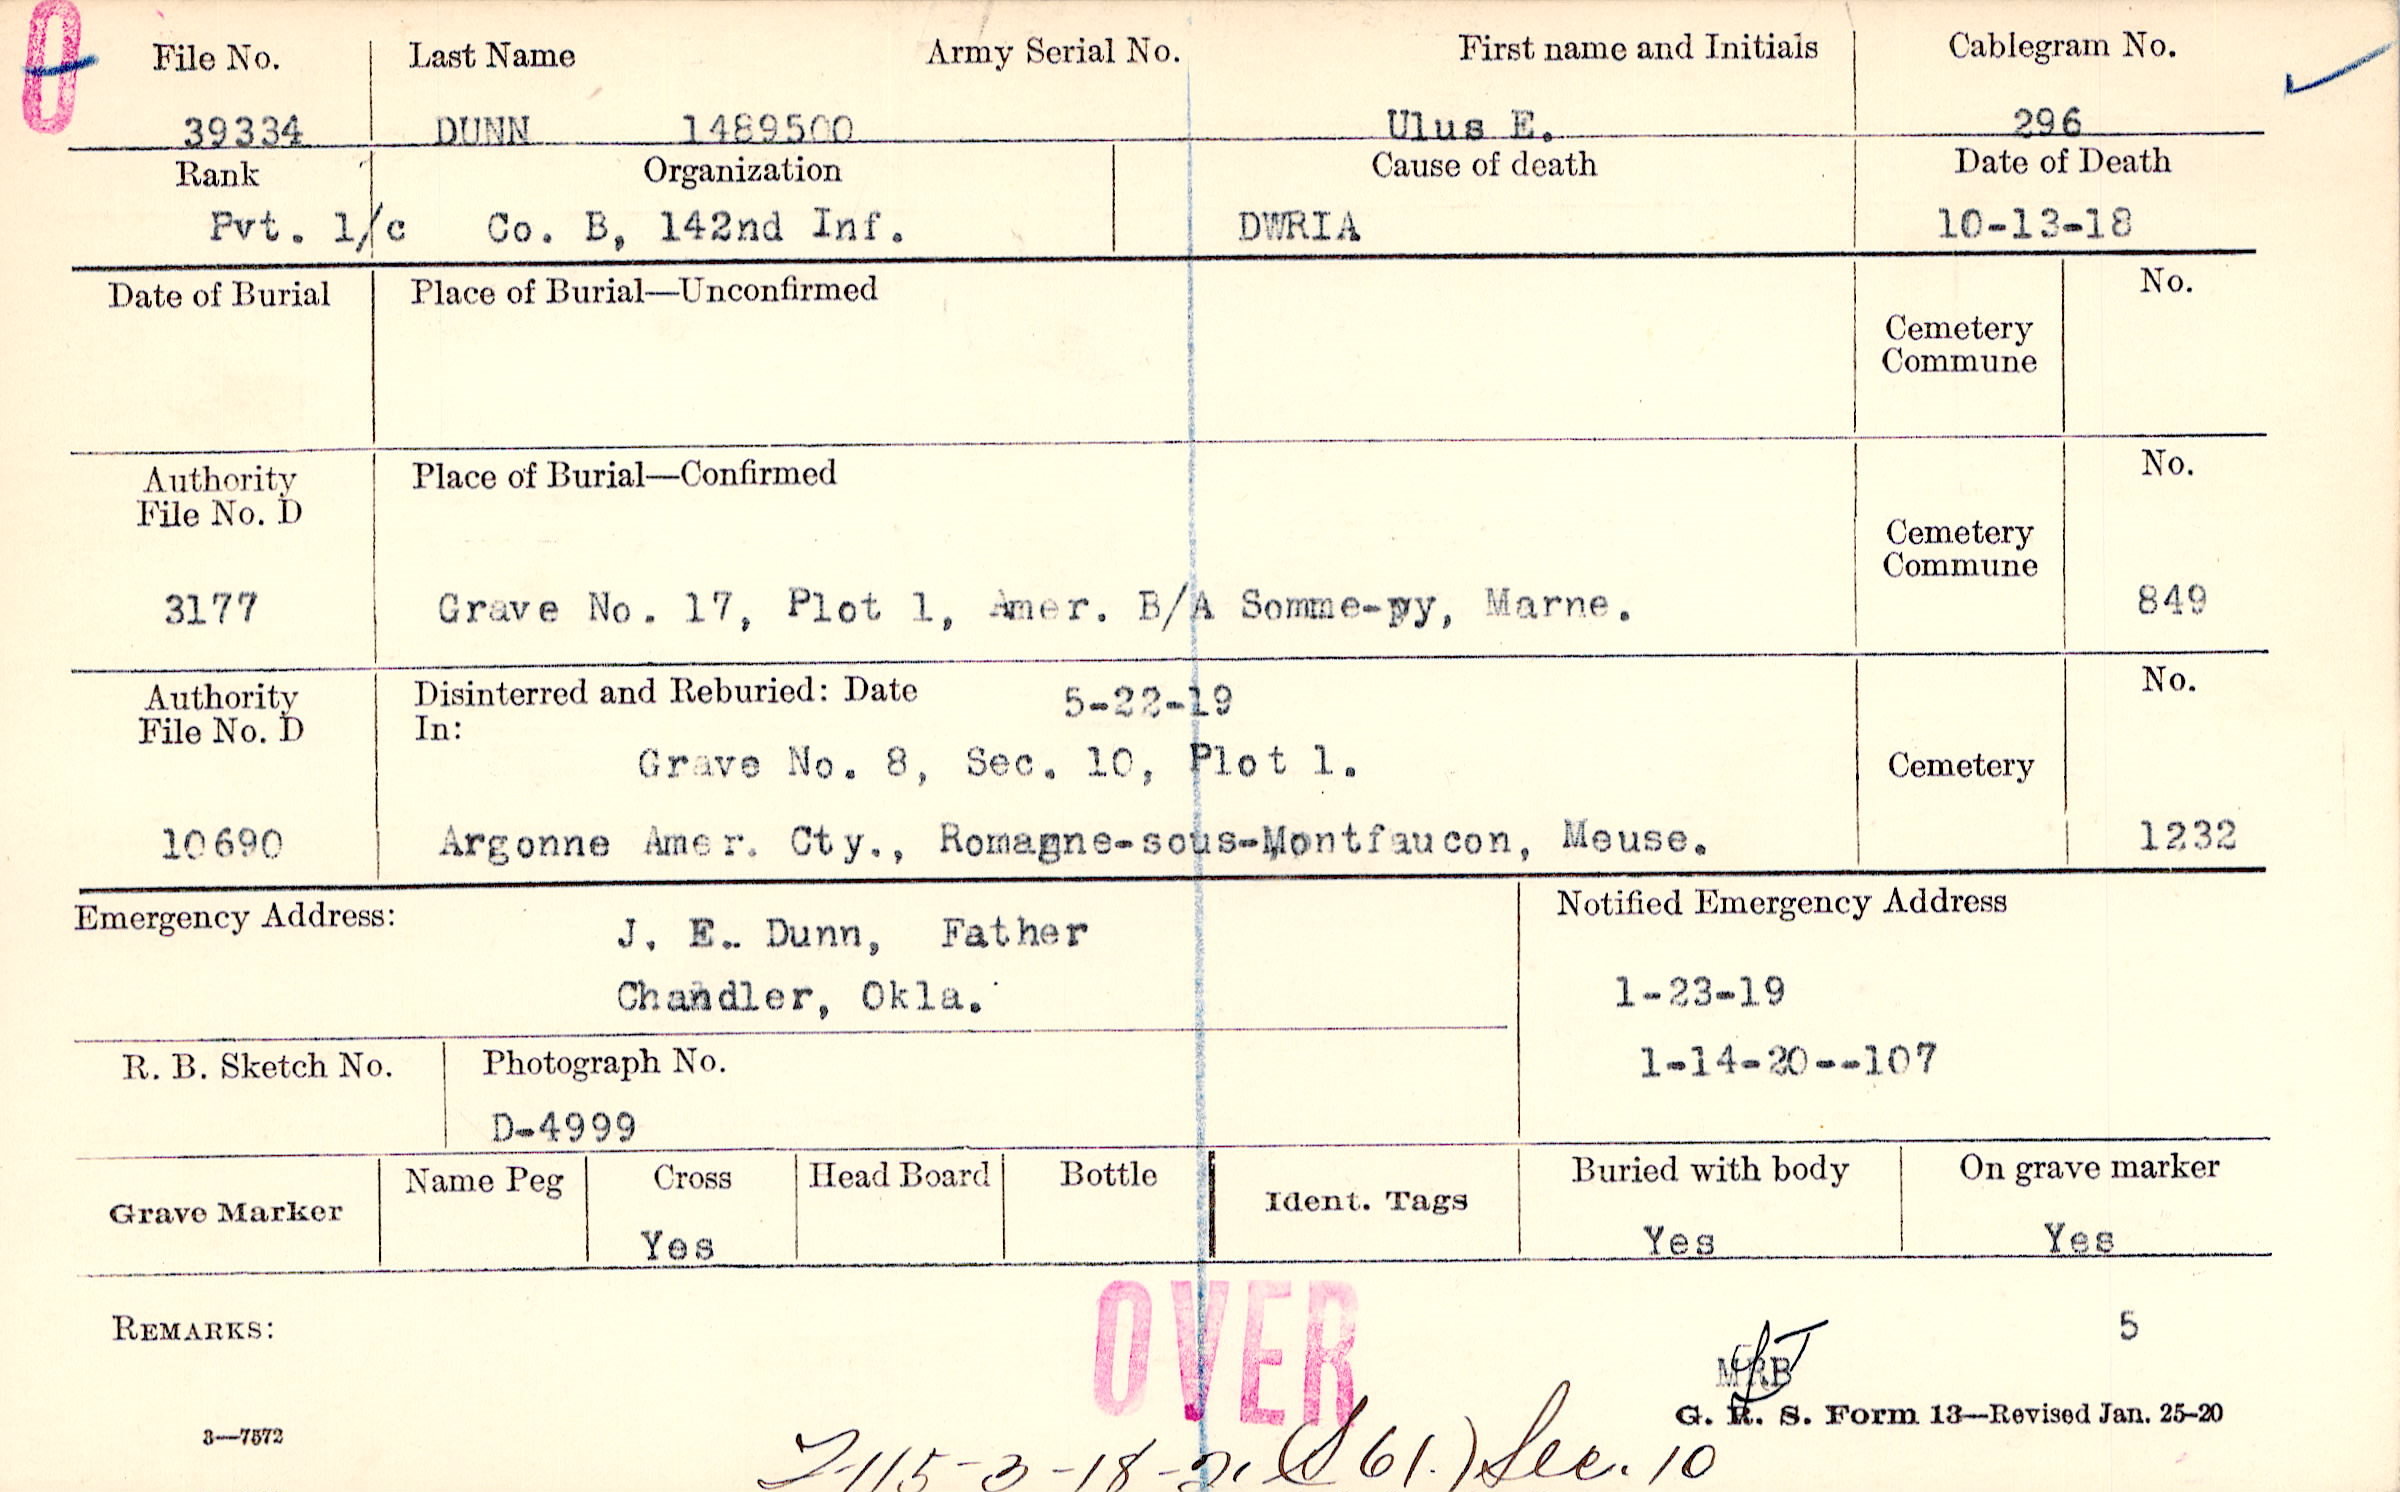 O
File No. Last Name Army Serial No. First name and Initials Cablegram No.
39334 DUNN 1489500 Ulus E. 296
Rank Organization Cause of death Date of Death
Pvt. 1/c Co. B, 142nd Inf. DWRIA 10-13-18
Date of Burial Place of Burial—Unconfirmed No.
Cemetery
Commune
Authority Place of Burial—Confirmed No.
File No. D
Cemetery
Commune
3177 Grave No. 17, Plot 1, Amer. B/A Somme-py, Marne. 849
Authority Disinterred and Reburied: Date 5-22-19 No.
File No. D In:
Grave No. 8, Sec. 10, Plot 1. Cemetery
10690 Argonne Amer. Cty., Romagne-sous-Montfaucon, Meuse. 1232
Emergency Address: J. E. Dunn, Father Notified Emergency Address
Chandler, Okla. 1-23-19
R. B. Sketch No. Photograph No. 1-14-20--107
D-4999
Grave Marker Name Peg Cross Head Board Bottle Ident. Tags Buried with body On grave marker
Yes Yes Yes
REMARKS: OVER 5
MRB
G. R. S. Form 13—Revised Jan. 25-20
3—7572
(S 61.) Sec. 10